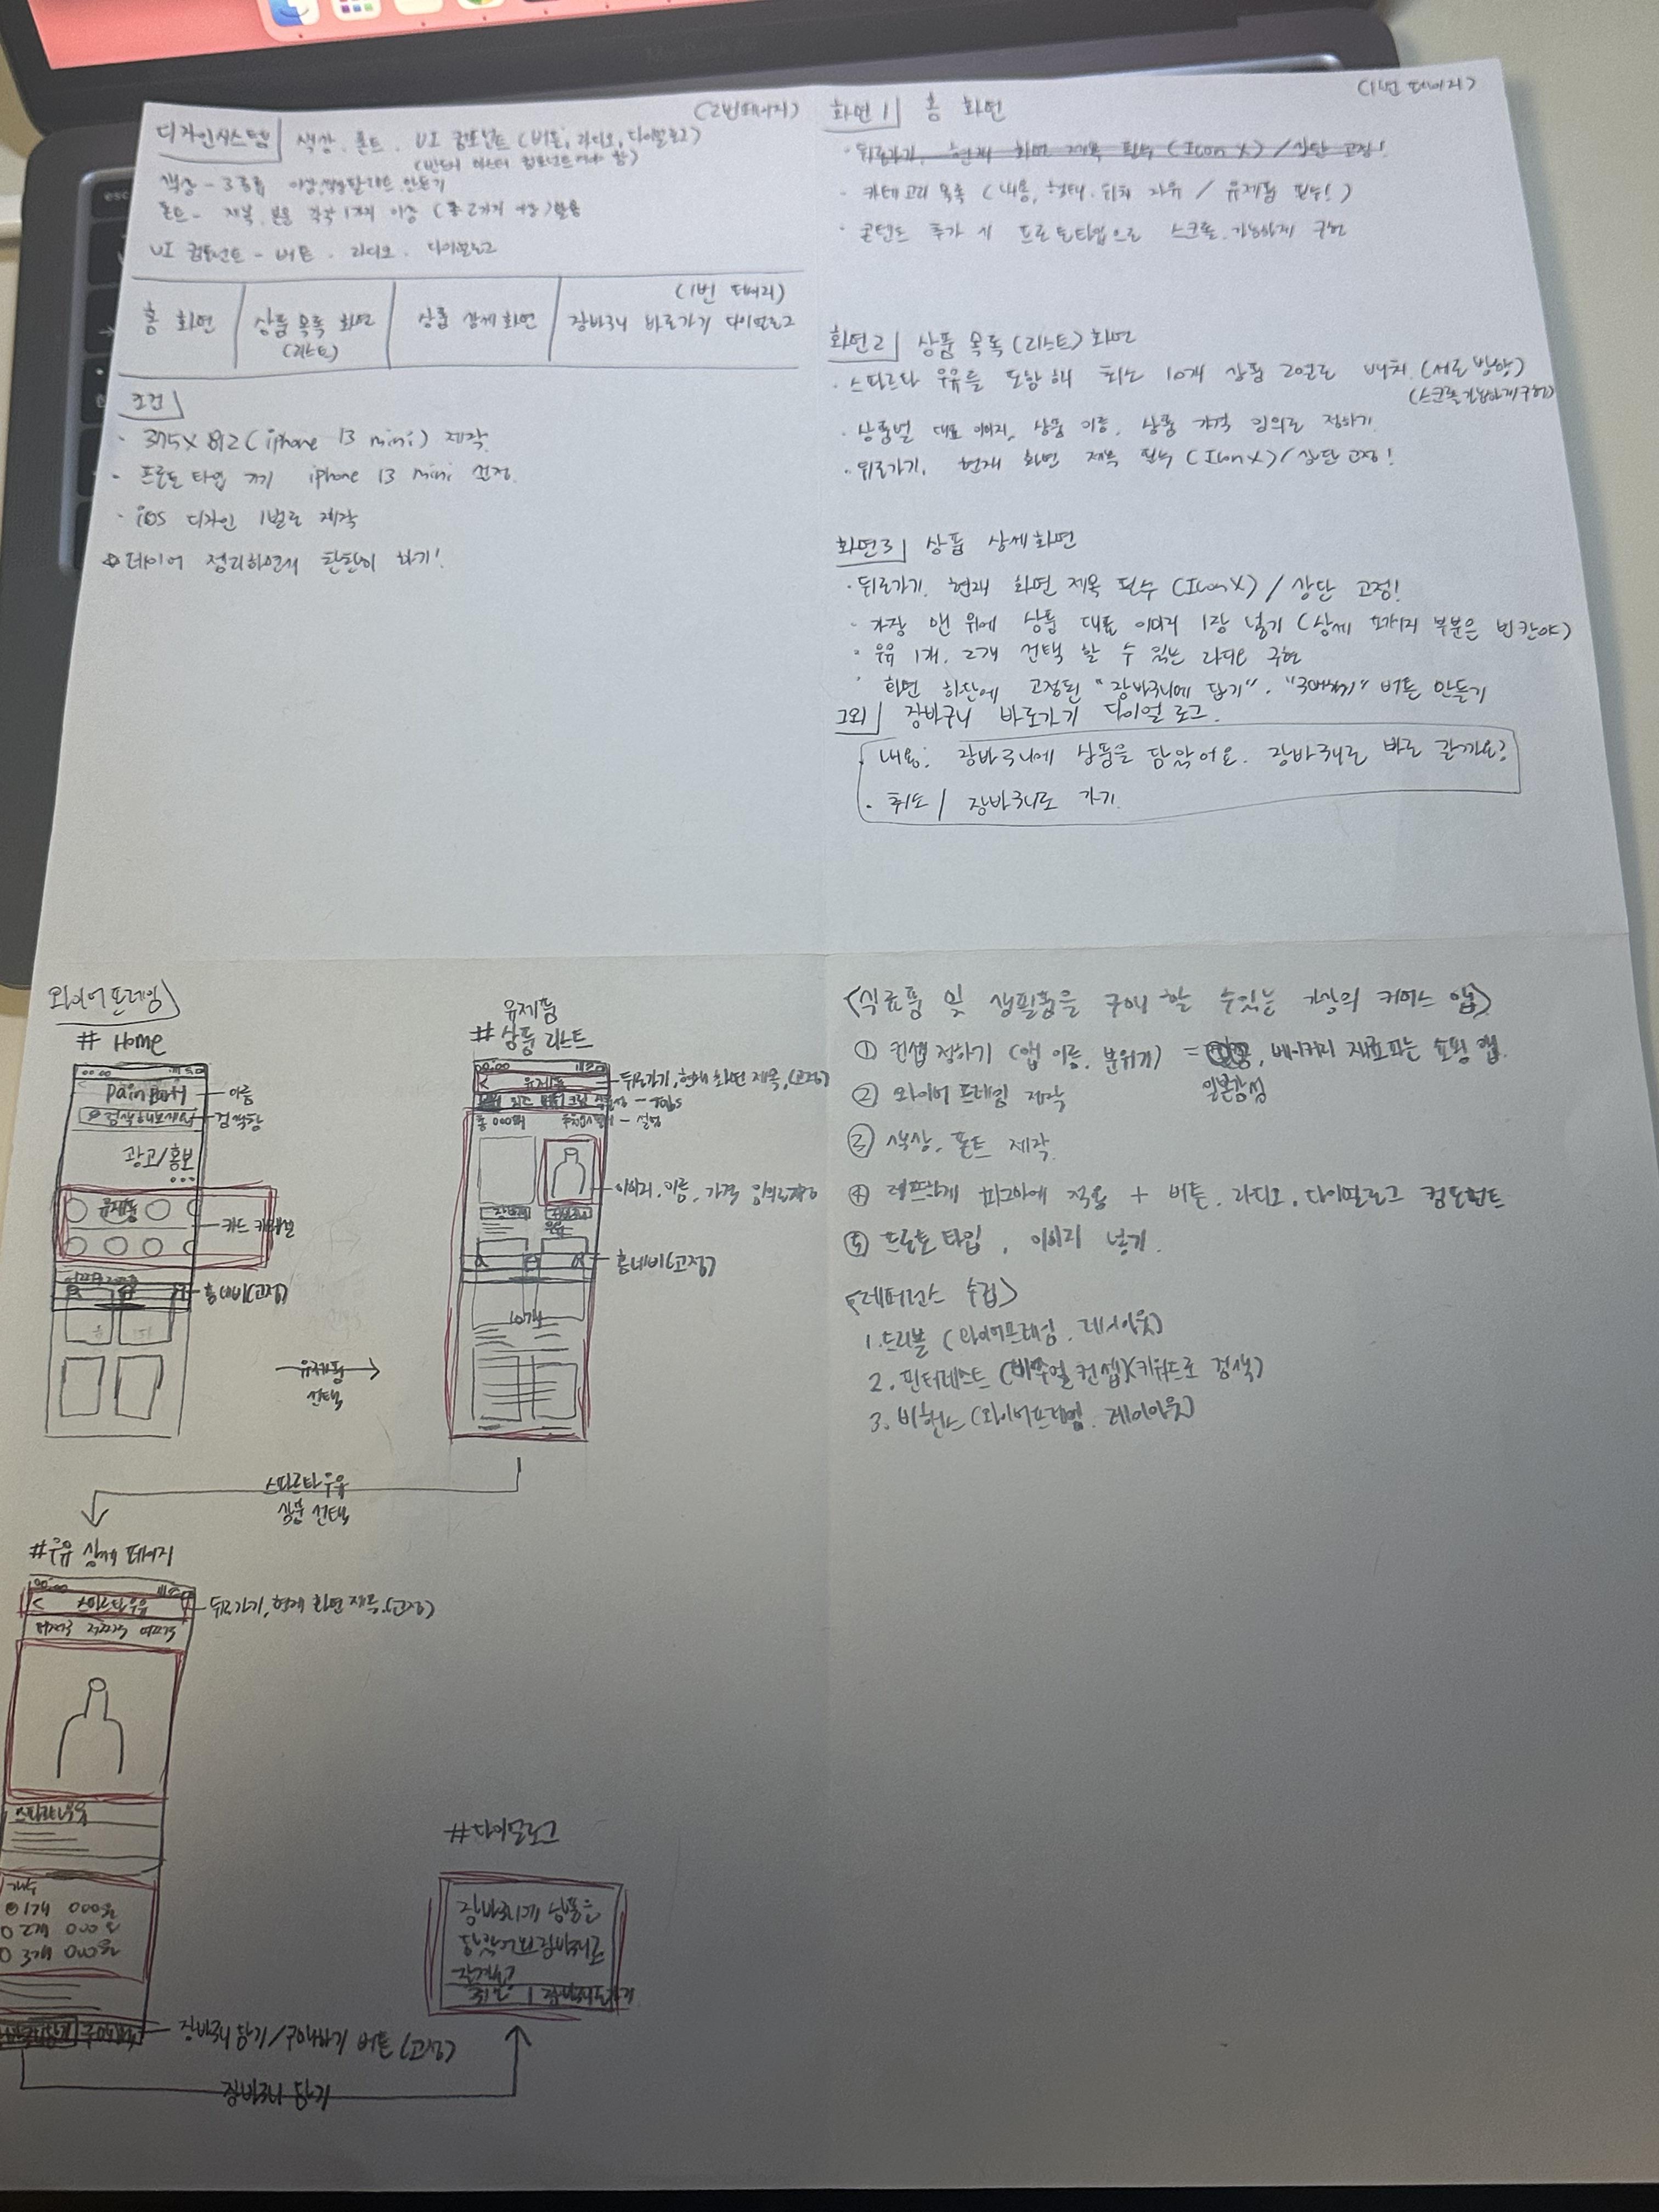 (2번페이지)
디자인시스템 색상. 폰트. UI 컴포넌트 (버튼, 라디오, 다이얼로그)
(반드시 마스터 컴포넌트여야 함)
색상 - 3종류 이상, 만들기
폰트 - 제목, 본문 각각 1개씩 이상 (총 2가지 이상) 활용
UI 컴포넌트 - 버튼. 라디오. 다이얼로그
(1번 페이지)
홈 화면
상품 목록 화면
(리스트)
상품 상세화면
장바구니 바로가기 다이얼로그
조건
· 375X812 (iphone 13 mini) 제작
· 프로토 타입 기기 iphone 13 mini 설정.
· iOS 디자인 1벌로 제작
☆ 레이어 정리하면서 찬찬히 하기!
(1번 페이지)
화면 1 홈 화면
· 뒤로가기, 현재 화면 제목 필수 (Icon X) / 상단 고정!
· 카테고리 목록 (내용, 형태, 위치 자유 / 유제품 필수!)
· 콘텐츠 추가 시 프로토타입으로 스크롤 가능하게 구현
화면2 상품 목록 (리스트) 화면
· 스파르타 우유를 포함해 최소 10개 상품 2열로 배치. (세로 방향)
(스크롤 가능하게 구현)
· 상품별 대표 이미지, 상품 이름, 상품 가격 임의로 정하기
· 뒤로가기, 현재 화면 제목 필수 (Icon X) / 상단 고정!
화면3 상품 상세화면
· 뒤로가기, 현재 화면 제목 필수 (Icon X) / 상단 고정!
· 가장 맨 위에 상품 대표 이미지 1장 넣기 (상세 페이지 부분은 빈칸 야)
· 우유 1개, 2개 선택 할 수 있는 라디오 구현
· 화면 하단에 고정된 "장바구니에 담기", "구매하기" 버튼 만들기
그외 장바구니 바로가기 다이얼로그.
내용: 장바구니에 상품을 담았어요. 장바구니로 바로 갈까요?
· 취소 / 장바구니로 가기.
와이어프레임
# Home
00:00
Pain
이름
검색해보세요
검색창
광고/홍보
유제품
카드 카테고리
홈네비(고정)
유제품 선택
유제품
# 상품 리스트
00:00
< 유제품
뒤로가기, 현재 화면 제목, (고정)
Tabs
총 000개
설명
이미지, 이름, 가격 임의로
우유
홈네비(고정)
10개
스파르타우유
상품 선택
#우유 상세 페이지
00:00
< 스파르타우유
뒤로가기, 현재 화면 제목.(고정)
스파르타우유
개수
1개 000원
2개 000원
3개 000원
구매하기
장바구니 담기/구매하기 버튼 (고정)
장바구니 담기
#다이얼로그
장바구니에 상품을
담았어요 장바구니로
갈까요?
취소 | 장바구니로가기
<식료품 및 생필품을 구매 할 수있는 가상의 커머스 앱>
① 컨셉 정하기 (앱 이름, 분위기) = , 베이커리 재료파는 쇼핑 앱.
일본감성
② 와이어 프레임 제작
③ 색상, 폰트 제작.
④ 피그마에 적용 + 버튼, 라디오, 다이얼로그 컴포넌트
⑤ 프로토 타입, 이미지 넣기.
<레퍼런스 수집>
1. 드리블 (와이어프레임, 레이아웃)
2. 핀터레스트 (비주얼 컨셉)(키워드로 검색)
3. 비핸스 (와이어프레임, 레이아웃)